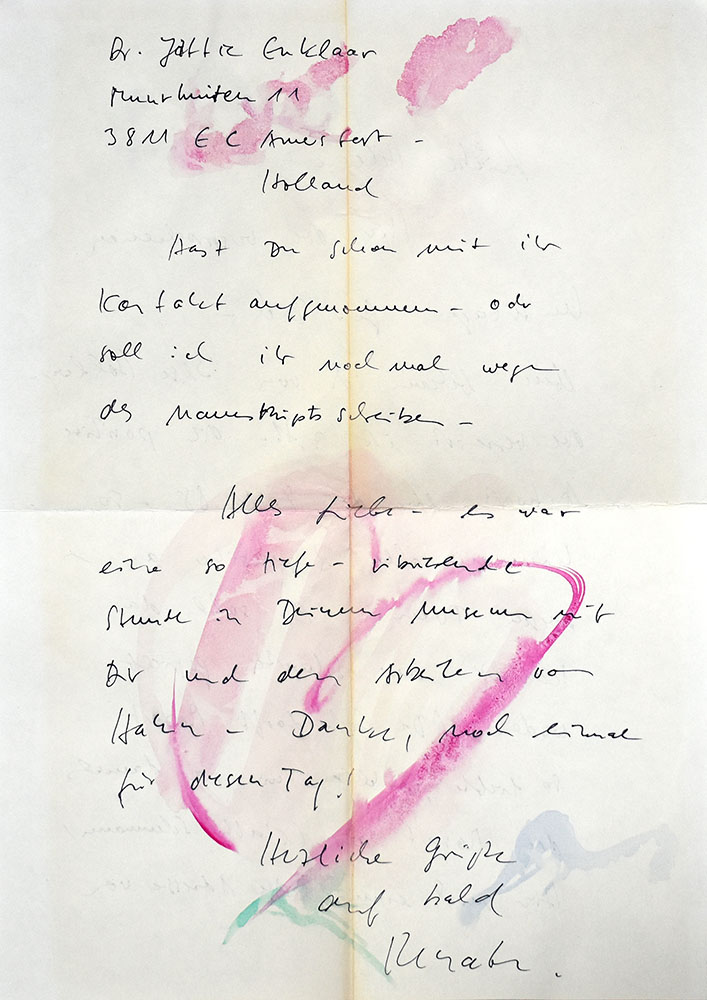 Dr. Jattie Enklaar
Muurhuizen 11
3811 EC Amersfort -
Holland
Hast Du schon mit ihr
Kontakt aufgenommen - oder
soll ich ihr noch mal wegen
des Manuskripts schreiben -
Alles Liebe - es war
eine so tiefe - vibrierende
Stunde in Deinem Museum mit
Dir und den Arbeiten von
Hahn - Danke, noch einmal
für diesen Tag!
Herzliche Grüße
auf bald
Renate.